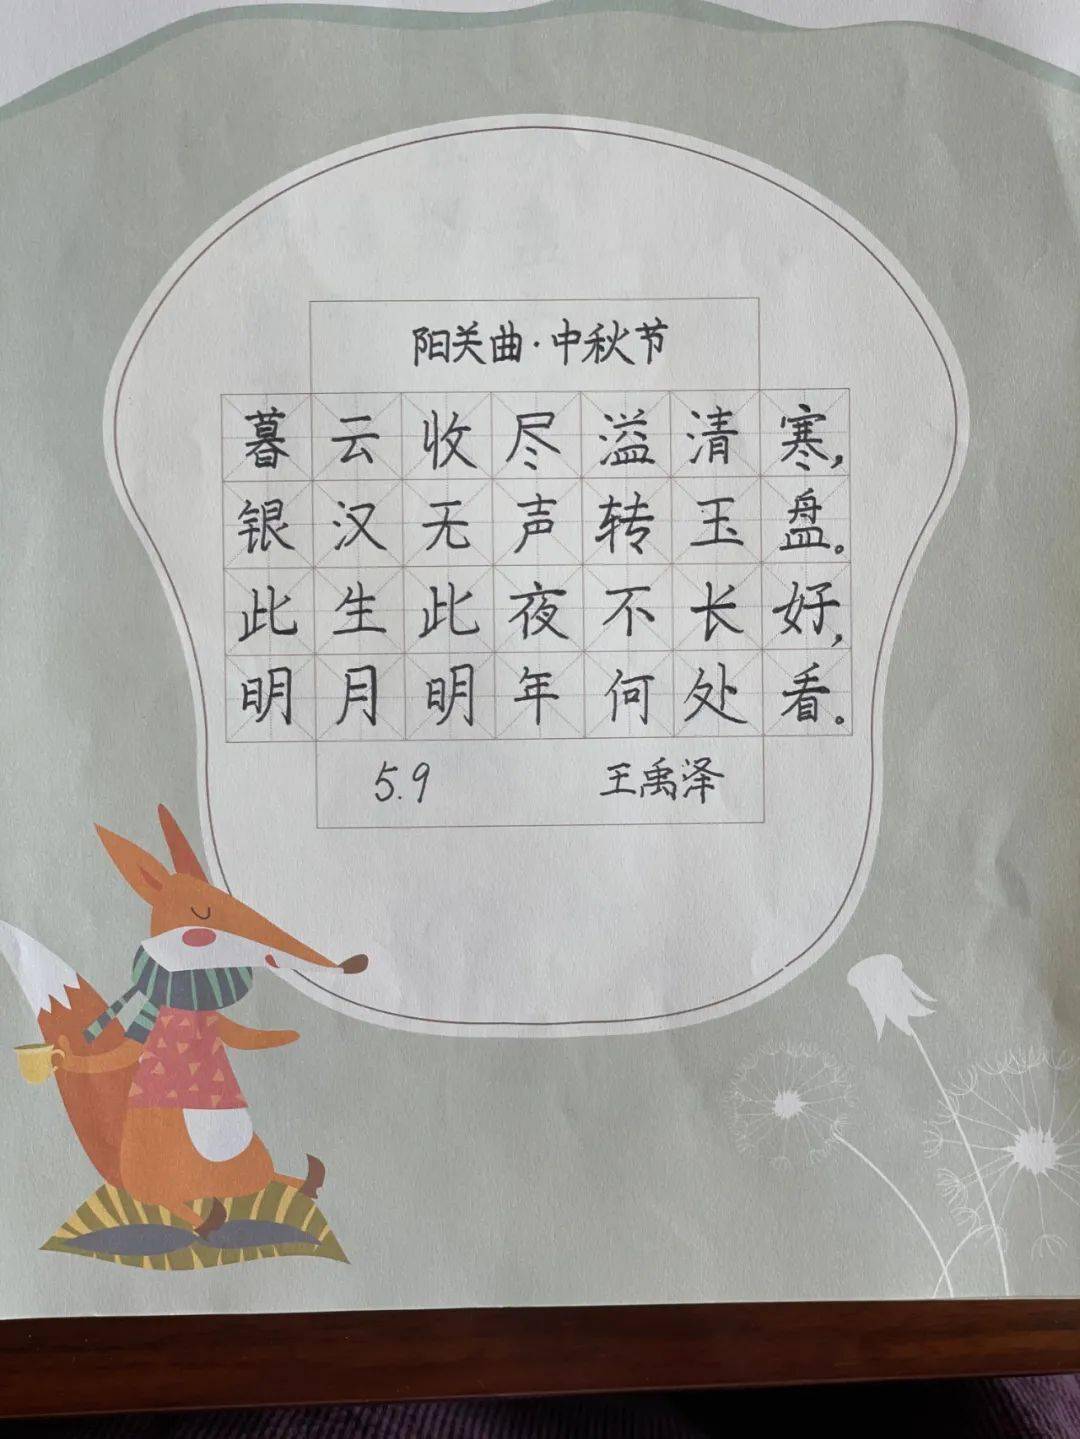 阳关曲·中秋节
暮云收尽溢清寒,
银汉无声转玉盘。
此生此夜不长好,
明月明年何处看。
5.9 王禹泽